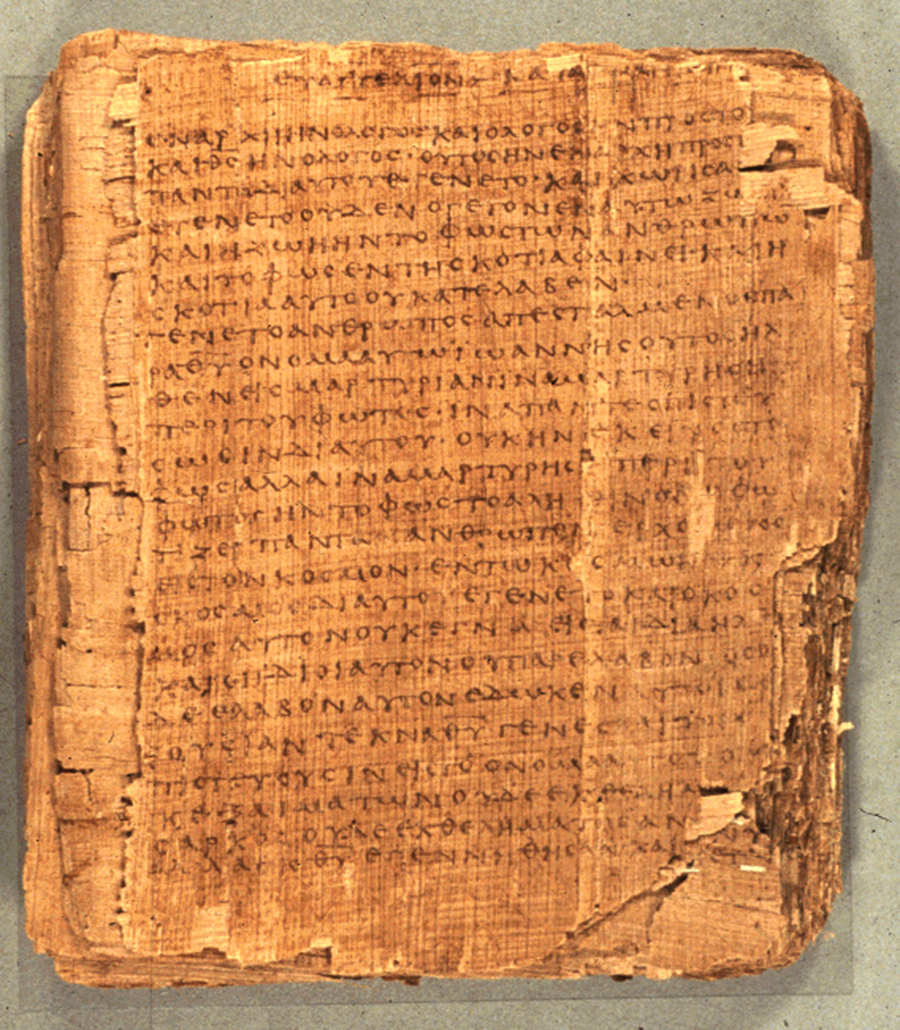 ΕΥΑΓΓΕΛΙΟΝ ΚΑΤΑ
ΕΝΑΡΧΗΗΝΟΛΟΓΟϹΚΑΙΟΛΟΓΟϹΗΝΠΡΟϹΤΟ
ΚΑΙΘ̅Ϲ̅ΗΝΟΛΟΓΟϹ·ΟΥΤΟϹΗΝΕΝΑΡΧΗΠΡΟϹ
ΠΑΝΤΑΔΙΑΥΤΟΥΕΓΕΝΕΤΟ·ΚΑΙΧΩΡΙϹΑ
ΕΓΕΝΕΤΟΟΥΔΕΝΟΓΕΓΟΝΕΝΑΥΤΩΖΩ
ΚΑΙΗΖΩΗΗΝΤΟΦΩϹΤΩΝΑΝΘΡΩΠΩ
ΚΑΙΤΟΦΩϹΕΝΤΗϹΚΟΤΙΑΦΑΙΝΕΙ·ΚΑΙΗ
ϹΚΟΤΙΑΑΥΤΟΟΥΚΑΤΕΛΑΒΕΝ·
ΕΓΕΝΕΤΟΑΝΘΡΩΠΟϹΑΠΕϹΤΑΛΜΕΝΟϹΠΑ
ΡΑΘ̅Υ̅ΟΝΟΜΑΑΥΤΩΙΩΑΝΝΗϹΟΥΤΟϹΗΛ
ΘΕΝΕΙϹΜΑΡΤΥΡΙΑΝΙΝΑΜΑΡΤΥΡΗϹΗ
ΠΕΡΙΤΟΥΦΩΤΟϹ·ΙΝΑΠΑΝΤΕϹΠΙϹΤΕΥ
ϹΩϹΙΝΔΙΑΥΤΟΥ·ΟΥΚΗΝΕΚΕΙΝΟϹΤΟ
ΦΩϹΑΛΛΑΙΝΑΜΑΡΤΥΡΗϹΗΠΕΡΙΤΟΥ
ΦΩΤΟϹΗΝΤΟΦΩϹΤΟΑΛΗΘΙΝΟΝΟΦΩ
ΤΙΖΕΙΠΑΝΤΑΑΝΘΡΩΠΟΝΕΡΧΟΜΕΝΟ
ΕΙϹΤΟΝΚΟϹΜΟΝ·ΕΝΤΩΚΟϹΜΩΗΝ
ΚΟϹΜΟϹΔΙΑΥΤΟΥΕΓΕΝΕΤΟΚΑΙΟΚΟϹ
ΜΟϹΑΥΤΟΝΟΥΚΕΓΝΩΕΙϹΤΑΙΔΙΑΗΛ
ΚΑΙΟΙΙΔΙΟΙΑΥΤΟΝΟΥΠΑΡΕΛΑΒΟΝ·ΟϹΟ
ΔΕΕΛΑΒΟΝΑΥΤΟΝΕΔΩΚΕΝΑΥΤΟΙϹΕ
ΞΟΥϹΙΑΝΤΕΚΝΑΘ̅Υ̅ΓΕΝΕϹΘΑΙΤΟΙϹ
ΠΙϹΤΕΥΟΥϹΙΝΕΙϹΤΟΟΝΟΜΑΑΥΤΟΥ
ΚΕΞΑΙΜΑΤΩΝΟΥΔΕΕΚΘΕΛΗΜΑ
ϹΑΡΚΟϹΟΥΔΕΕΚΘΕΛΗΜΑΤΟϹΑΝ
ΑΛΛΑΕΚΘ̅Υ̅ΕΓΕΝΝΗΘΗϹΑΝΚΑΙ